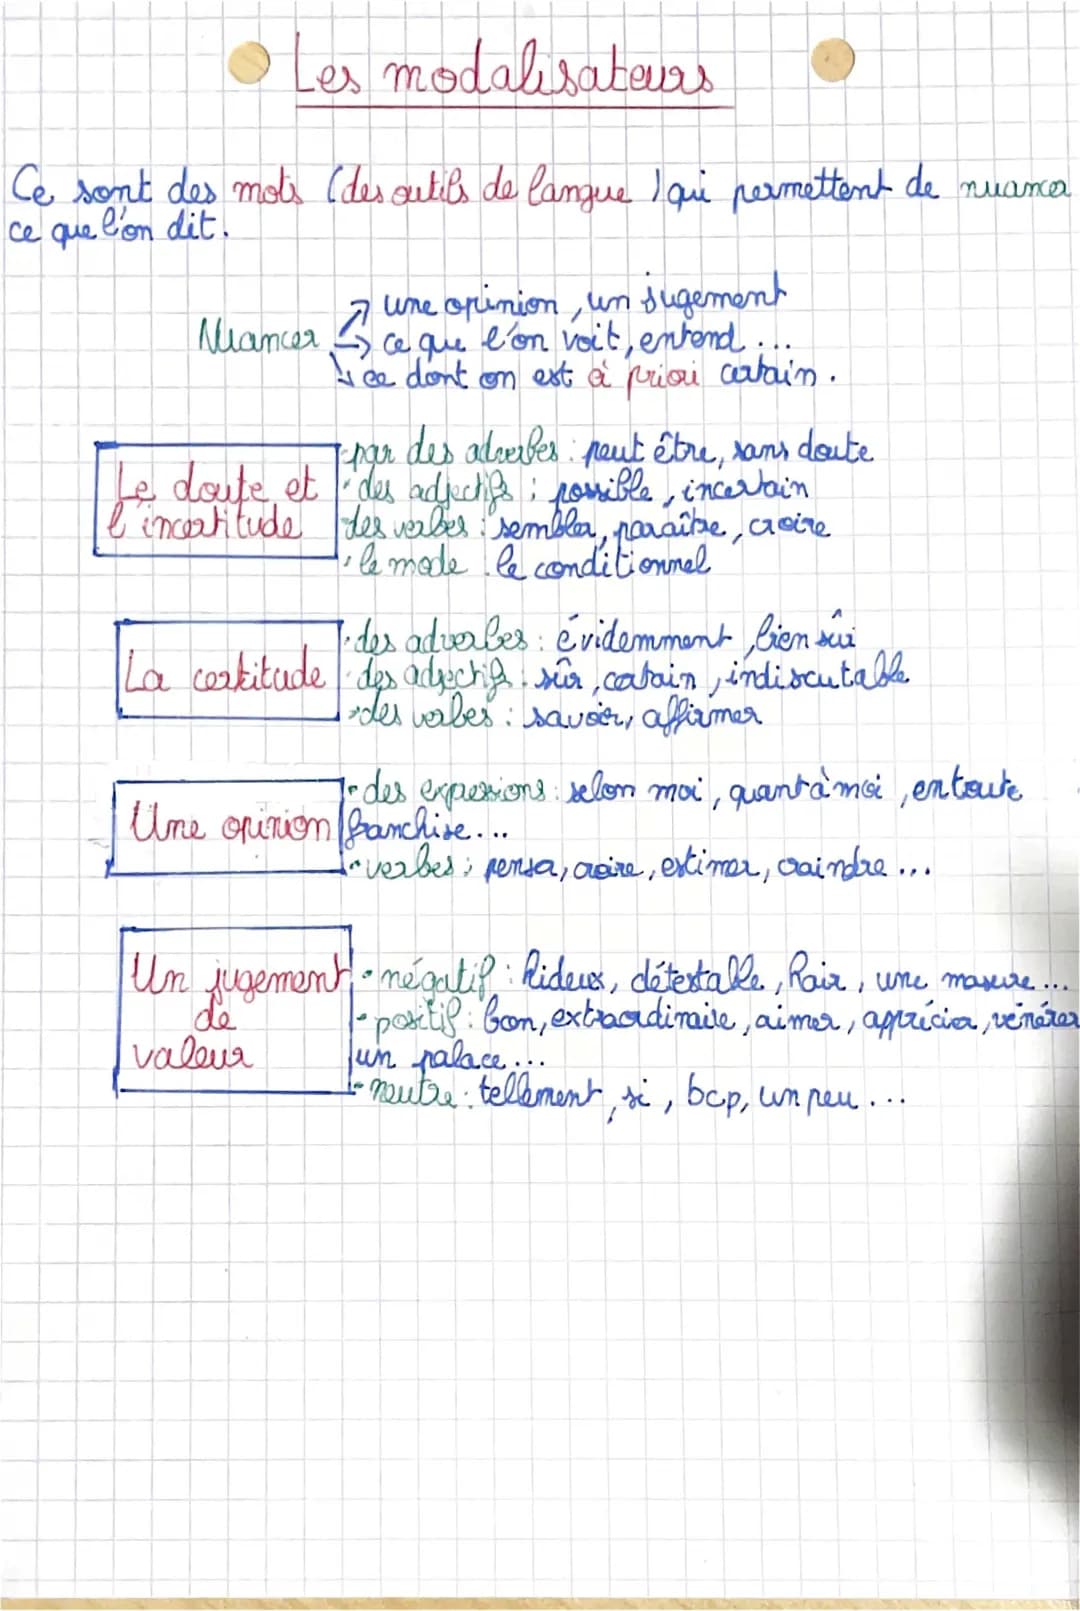 Les modalisateurs
Ce sont des mots (des outils de langue) qui permettent de nuancer
ce que l'on dit.
une opinion, un jugement
Nuancer ce que l'on voit, entend...
ce dont on est à priori certain.
par des adverbes : peut être, sans doute
Le doute et · des adjectifs : possible, incertain
l'incertitude des verbes : sembler, paraître, croire
· le mode : le conditionnel
· des adverbes : évidemment, bien sûr
La certitude · des adjectifs : sûr, certain, indiscutable
· des verbes : savoir, affirmer
- des expressions : selon moi, quant à moi, en toute
Une opinion franchise...
- verbes : penser, croire, estimer, craindre...
Un jugement - négatif : hideux, détestable, haïr, une masure...
de - positif : bon, extraordinaire, aimer, apprécier, vénérer
valeur un palace...
- neutre : tellement, si, bcp, un peu...